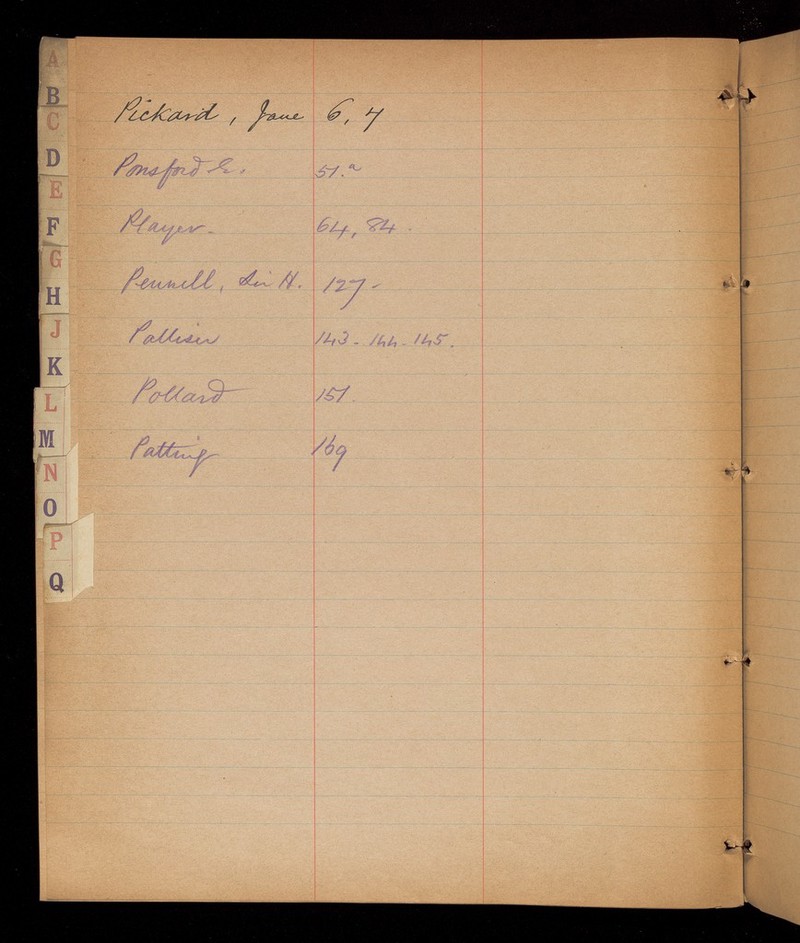 A
B
C
D
E
F
G
H
J
K
L
M
N
O
P
Q
Pickard, Jane 6, 7
Ponsford E. 51.a
Player. 64, 84.
Pennell, Sir H. 127.
Palliser 143 - 144 - 145.
Pollard 151.
Patting 169